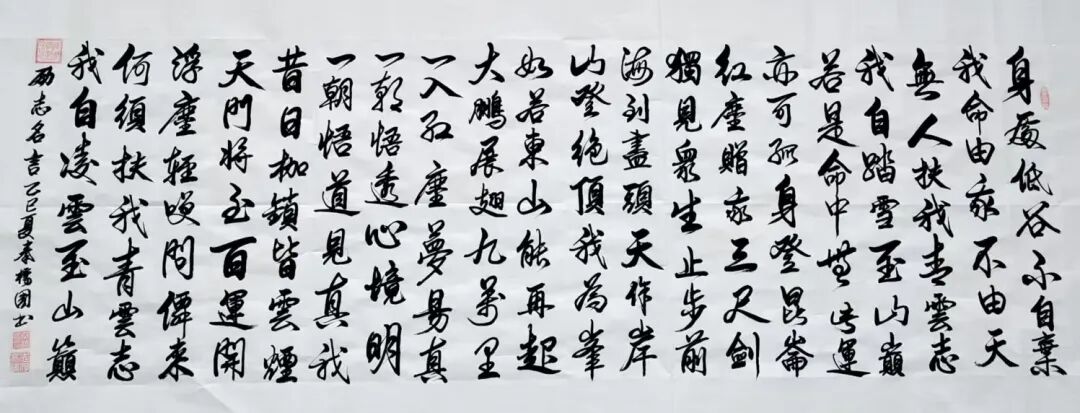 身處低谷不自棄
我命由我不由天
無人扶我青雲志
我自踏雪至山巔
若是命中無此運
亦可孤身登昆崙
紅塵贈我三尺劍
獨見眾生止步前
海到盡頭天作岸
山登絕頂我為峯
如若東山能再起
大鵬展翅九萬里
一入紅塵夢易真
一朝悟透心境明
一朝悟道見真我
昔日枷鎖皆雲煙
天門將至百運開
浮塵輕嘆問僊來
何須扶我青雲志
我自凌雲至山巔
励志名言 乙巳夏 秦國书